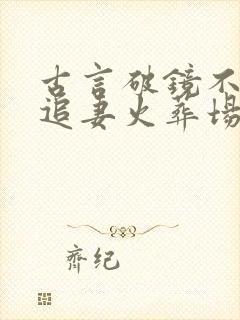 古言破镜不
追妻火葬场
齐纪